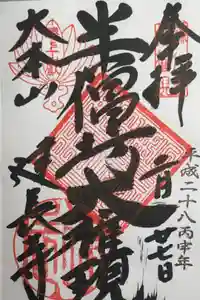 奉拝
平成二十八丙申年
廿七日
半僧坊大権現
大本山
建長寺